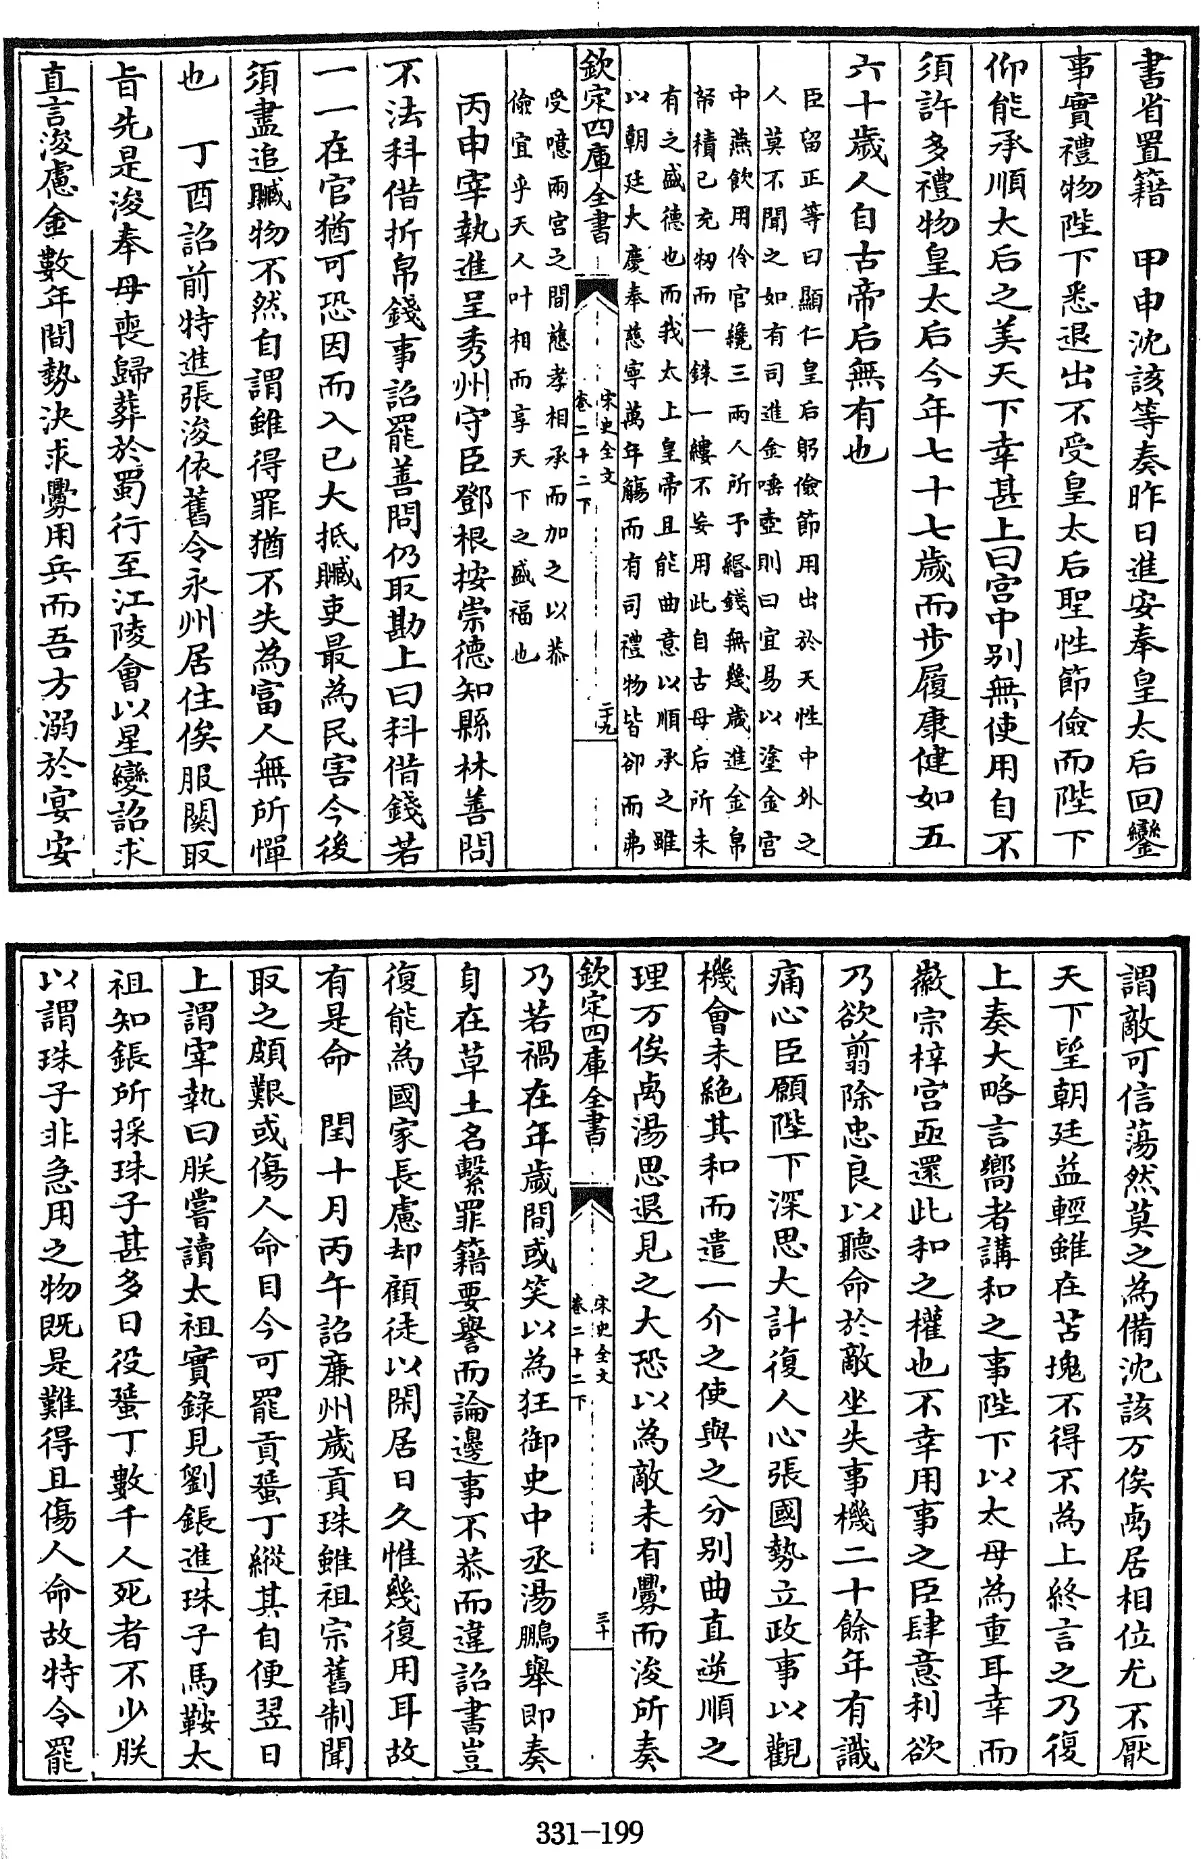 書省置籍　甲申沈該等奏昨日進安奉皇太后回鑾
事實禮物陛下悉退出不受皇太后聖性節儉而陛下
仰能承順太后之美天下幸甚上曰宮中别無使用自不
須許多禮物皇太后今年七十七歲而步履康健如五
六十歲人自古帝后無有也
臣留正等曰顯仁皇后躬儉節用出於天性中外之
人莫不聞之如有司進金唾壺則曰宜易以塗金宮
中燕飲用伶官纔三兩人所予緡錢無幾歲進金帛
帑積已充牣而一銖一縷不妄用此自古母后所未
有之盛德也而我太上皇帝且能曲意以順承之雖
以朝廷大慶奉慈寧萬年觴而有司禮物皆卻而弗
欽定四庫全書
宋史全文
卷二十二下
二十九
受噫兩宮之間慈孝相承而加之以恭
儉宜乎天人叶相而享天下之盛福也
丙申宰執進呈秀州守臣鄧根按崇德知縣林善問
不法科借折帛錢事詔罷善問仍取勘上曰科借錢若
一一在官猶可恐因而入已大抵贓吏最為民害今後
須盡追贓物不然自謂雖得罪猶不失為富人無所憚
也　丁酉詔前特進張浚依舊令永州居住俟服闋取
旨先是浚奉母喪歸葬於蜀行至江陵會以星變詔求
直言浚慮金數年間勢決求釁用兵而吾方溺於宴安
謂敵可信蕩然莫之為備沈該万俟卨居相位尤不厭
天下望朝廷益輕雖在苫塊不得不為上終言之乃復
上奏大略言嚮者講和之事陛下以太母為重耳幸而
徽宗梓宮亟還此和之權也不幸用事之臣肆意利欲
乃欲翦除忠良以聽命於敵坐失事機二十餘年有識
痛心臣願陛下深思大計復人心張國勢立政事以觀
機會未絶其和而遣一介之使與之分别曲直逆順之
理万俟卨湯思退見之大恐以為敵未有釁而浚所奏
欽定四庫全書
宋史全文
卷二十二下
三十
乃若禍在年歲間或笑以為狂御史中丞湯鵬舉即奏
身在草土名繫罪籍要譽而論邊事不恭而違詔書豈
復能為國家長慮却顧徒以閑居日久惟幾復用耳故
有是命　閏十月丙午詔廉州歲貢珠雖祖宗舊制聞
取之頗艱或傷人命目今可罷貢蜑丁縱其自便翌日
上謂宰執曰朕嘗讀太祖實錄見劉鋹進珠子馬鞍太
祖知鋹所採珠子甚多日役蜑丁數千人死者不少朕
以謂珠子非急用之物既是難得且傷人命故特令罷
331-199